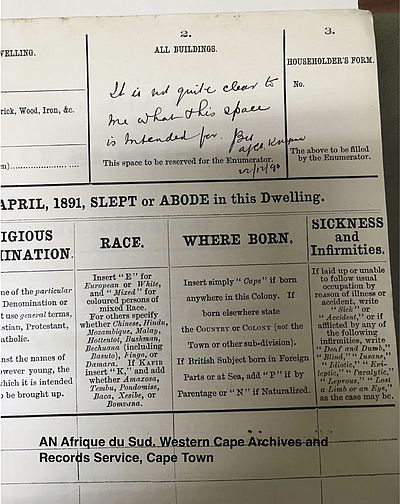 2.
3.
WELLING.
ALL BUILDINGS.
HOUSEHOLDER'S FORM.
It is not quite clear to
me what this space
is intended for.
No.
rick, Wood, Iron, &c.
The above to be filled
by the Enumerator.
This space to be reserved for the Enumerator.
22/12/90
APRIL, 1891, SLEPT or ABODE in this Dwelling.
IGIOUS
INATION.
ne of the particular
Denomination or
t use general terms,
istian, Protestant,
atholic.
nst the names of
owever young, the
hich it is intended
o be brought up.
RACE.
Insert "E" for
European or White,
and "Mixed" for
coloured persons of
mixed Race.
For others specify
whether Chinese, Hindu,
Mozambique, Malay,
Hottentot, Bushman,
Bechuana (including
Basuto), Fingo, or
Damara. If KAFIR
insert "K," and add
whether Amaxosa,
Tembu, Pondomise,
Baca, Xesibe, or
Bomvana.
WHERE BORN.
Insert simply "Cape" if born
anywhere in this Colony. If
born elsewhere state
the COUNTRY or COLONY (not the
Town or other sub-division).
If British Subject born in Foreign
Parts or at Sea, add "P" if by
Parentage or "N" if Naturalized.
SICKNESS
and
Infirmities.
If laid up or unable
to follow usual
occupation by
reason of illness or
accident, write
"Sick" or
"Accident," or if
afflicted by any of
the following
infirmities, write
"Deaf and Dumb,"
"Blind," "Insane,"
"Idiotic," "Epi-
leptic," "Paralytic,"
"Leprous," "Lost
a Limb or an Eye,"
as the case may be.
AN Afrique du Sud, Western Cape Archives and
Records Service, Cape Town